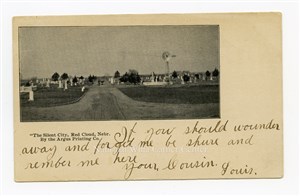 "The Silent City, Red Cloud, Nebr.
By the Argus Printing Co.
If you should wounder
away and forget me be shure and
rember me here
Your Cousin
Louis.